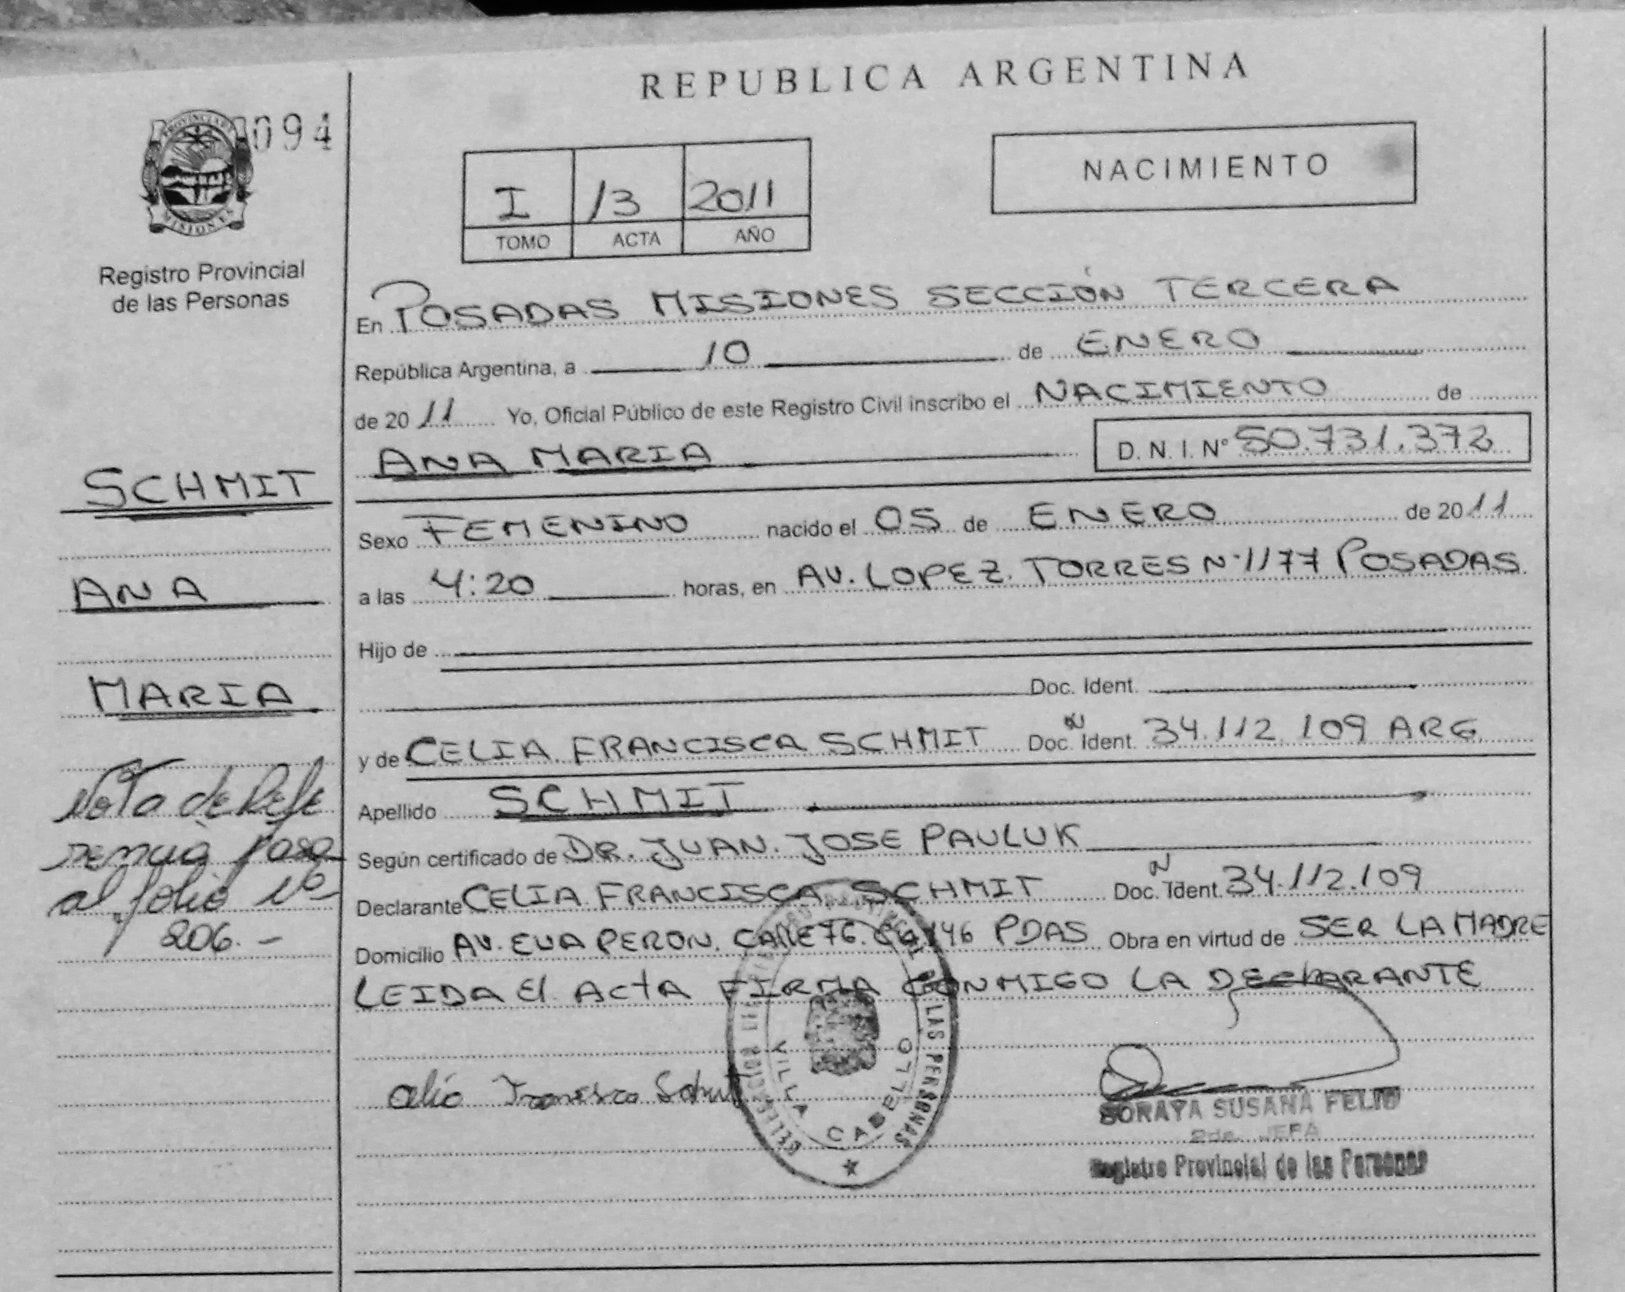 REPUBLICA ARGENTINA
094
PROVINCIA DE MISIONES
Registro Provincial
de las Personas
I /3 2011
TOMO ACTA AÑO
NACIMIENTO
En POSADAS MISIONES SECCIÓN TERCERA
República Argentina, a 10 de ENERO
de 2011 Yo, Oficial Público de este Registro Civil inscribo el NACIMIENTO de
ANA MARIA D. N. I. N° 50.731.372
Sexo FEMENINO nacido el 05 de ENERO de 2011
a las 4:20 horas, en AV. LOPEZ. TORRES N°1177 POSADAS.
Hijo de
Doc. Ident.
y de CELIA FRANCISCA SCHMIT Doc. N Ident. 34.112.109 ARG.
Apellido SCHMIT
Según certificado de DR. JUAN. JOSE PAULUK
Declarante CELIA FRANCISCA SCHMIT Doc. N Ident. 34.112.109
Domicilio AV. EVA PERON. CALLE 76. 146 PDAS Obra en virtud de SER LA MADRE
LEIDA El ACtA FIRMA CONMIGO LA DECLARANTE
SCHMIT
ANA
MARIA
Nota de Refe
rencia pasa
al folio Nº
206. -
VILLA CABELLO
LAS PERSONAS
SORAYA SUSANA FELIU
2da. JEFA
Registro Provincial de las Personas